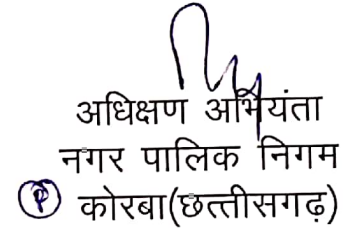 अधिक्षण अभियंता
नगर पालिक निगम
कोरबा(छत्तीसगढ़)